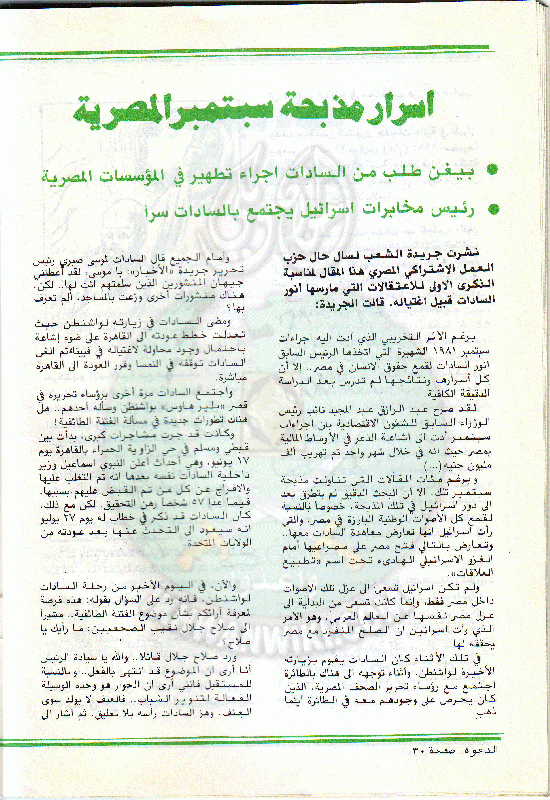 اسرار مذبحة سبتمبر المصرية
● بيغن طلب من السادات اجراء تطهير في المؤسسات المصرية
● رئيس مخابرات اسرائيل يجتمع بالسادات سرا
نشرت جريدة الشعب لسان حال حزب
العمل الاشتراكي المصري هذا المقال لمناسبة
الذكرى الاولى للاعتقالات التي مارسها انور
السادات قبيل اغتياله. قالت الجريدة:
برغم الأثر التخريبي الذي أدت اليه جراءات
سبتمبر ١٩٨١ الشهيرة التي اتخذها الرئيس السابق
انور السادات لقمع حقوق الانسان في مصر.. الا أن
كل أسرارها ونتائجها لم تدرس بعد الدراسة
الدقيقة الكافية
لقد صرح عبد الرازق عبد المجيد نائب رئيس
الوزراء السابق للشئون الاقتصادية بأن اجراءات
سبتمبر أدت الى اشاعة الذعر في الأوساط المالية
بمصر حيث انه في خلال شهر واحد تم تهريب ألف
مليون جنيه (...)
وبرغم مئات المقالات التي تناولت مذبحة
سبتمبر تلك الا أن البحث الدقيق لم يتطرق بعد
الى دور اسرائيل في تلك المذبحة، خصوصاً بالنسبة
لقمع كل الأصوات الوطنية البارزة في مصر، والتي
رأت اسرائيل انها تعارض معاهدة السادات معها..
وتعارض بالتالي فتح مصر على مصراعيها أمام
الغزو الاسرائيلي الهادىء تحت اسم «تطبيع
العلاقات».
ولم تكن اسرائيل تسعى الى عزل تلك الأصوات
داخل مصر فقط، وإنما كانت تسعى من البداية الى
عزل مصر نفسها عن العالم العربي، وهو الأمر
الذي رأت اسرائيل ان الصلح المنفرد مع مصر
يحققه لها
في تلك الأثناء كان السادات يقوم بزيارته
الأخيرة لواشنطن. وأثناء توجهه الى هناك بالطائرة
اجتمع مع رؤساء تحرير الصحف المصرية، الذين
كان يحرص على وجودهم معه في الطائرة أينما
ذهب
وأمام الجميع قال السادات لموسى صبري رئيس
تحرير جريدة «الأخبار»: يا موسى، لقد أعطتني
جيهان المنشورين الذين سلمتهم أنت لها.. لكن،
هناك منشورات أخرى وزعت بالمساجد، ألم تعرف
بها؟
ومضى السادات في زيارته لواشنطن حيث
تعدلت خطط عودته الى القاهرة على ضوء إشاعة
باحتمال وجود محاولة لاغتياله في فيينا، ثم الغى
السادات توقفه في النمسا وقرر العودة الى القاهرة
مباشرة.
واجتمع السادات مرة أخرى برؤساء تحريره في
قصر «بلير هاوس» بواشنطن وسأله أحدهم.. هل
هناك تطورات جديدة في مسألة الفتنة الطائفية؟
وكانت قد جرت مشاجرات كبرى، بدأت بين
قبطي ومسلم في حي الزاوية الحمراء بالقاهرة يوم
١٧ يونيو، وهي أحداث أعلن النبوي اسماعيل وزير
داخلية السادات نفسه بعدها انه تم التغلب عليها
والافراج عن كل من تم القبض عليهم بسببها،
فيما عدا ٥٧ شخصاً رهن التحقيق. لكن مع ذلك،
كان السادات قد ذكر في خطاب له يوم ٢٧ يوليو
انه سيعود الى التحدث عنها بعد عودته من
الولايات المتحدة.
والآن، في اليوم الأخير من رحلة السادات
لواشنطن، فانه رد على السؤال بقوله: هذه فرصة
لمعرفة آرائكم بشأن موضوع الفتنة الطائفية.. مشيراً
الى صلاح جلال نقيب الصحفيين: ما رأيك يا
صلاح؟
ورد صلاح جلال قائلاً.. والله يا سيادة الرئيس
أنا أرى ان الموضوع قد انتهى بالفعل.. وبالنسبة
للمستقبل فانني أرى ان الحوار هو وحده الوسيلة
الفعالة لتنوير الشباب.. فالعنف لا يولد سوى
العنف. وهز السادات رأسه بلا تعليق. ثم أشار الى
الدعوة صفحة ٣٠